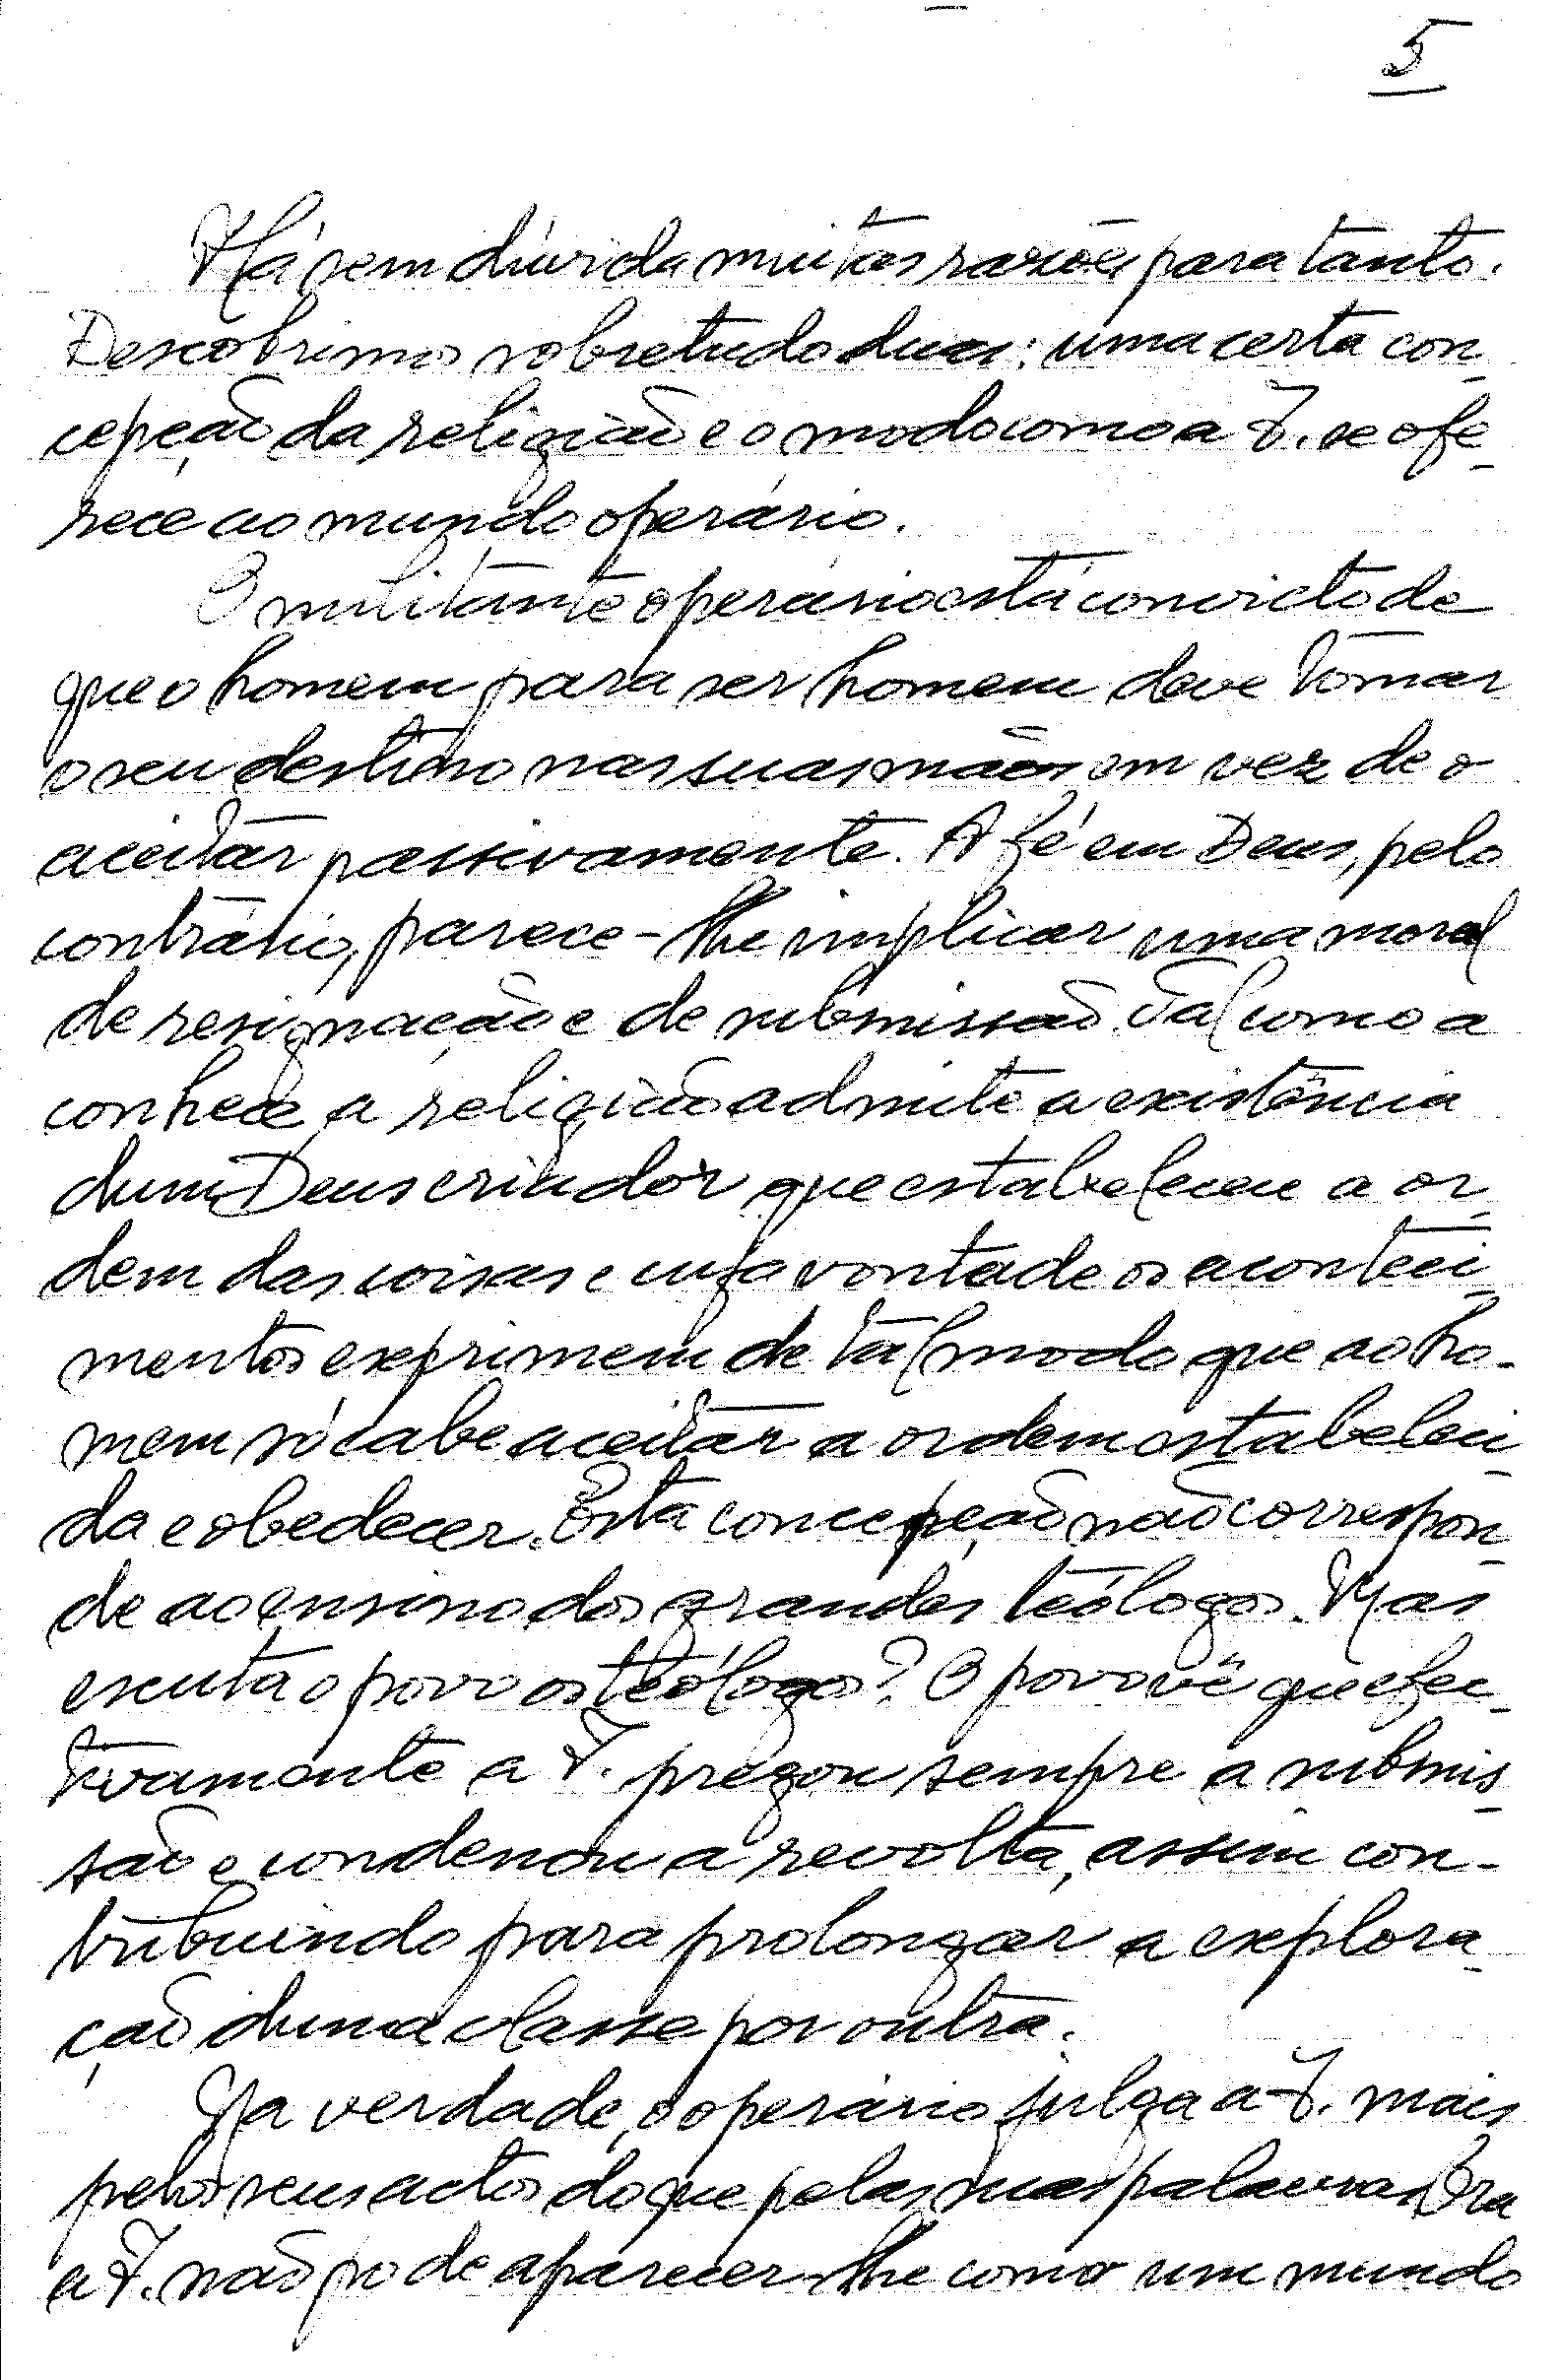 5
Há sem dúvida muitas razões para tanto.
Descobrimos sobretudo duas: uma certa con_
cepção da religião e o modo como a I. se ofe_
rece ao mundo operário.
O militante operário está convicto de
que o homem para ser homem deve tomar
o seu destino nas suas mãos em vez de o
aceitar passivamente. A fé em Deus, pelo
contrário, parece-lhe implicar uma moral
de resignação e de submissão. Tal como a
conhece, a religião admite a existência
dum Deus criador que estabeleceu a or_
dem das coisas e cuja vontade os aconteci_
mentos exprimem de tal modo que ao ho-
mem só cabe aceitar a ordem estabeleci_
da e obedecer. Esta concepção não correspon_
de ao ensino dos grandes teólogos. Mas
escuta o povo os teólogos? O povo vê que efec_
tivamente a I. pregou sempre a submis_
são e condenou a revolta, assim con-
tribuindo para prolongar a explora_
ção duma classe por outra.
Na verdade, o operário julga a I. mais
pelos seus actos do que pelas suas palavras. Ora
a I. não pode aparecer-lhe como um mundo